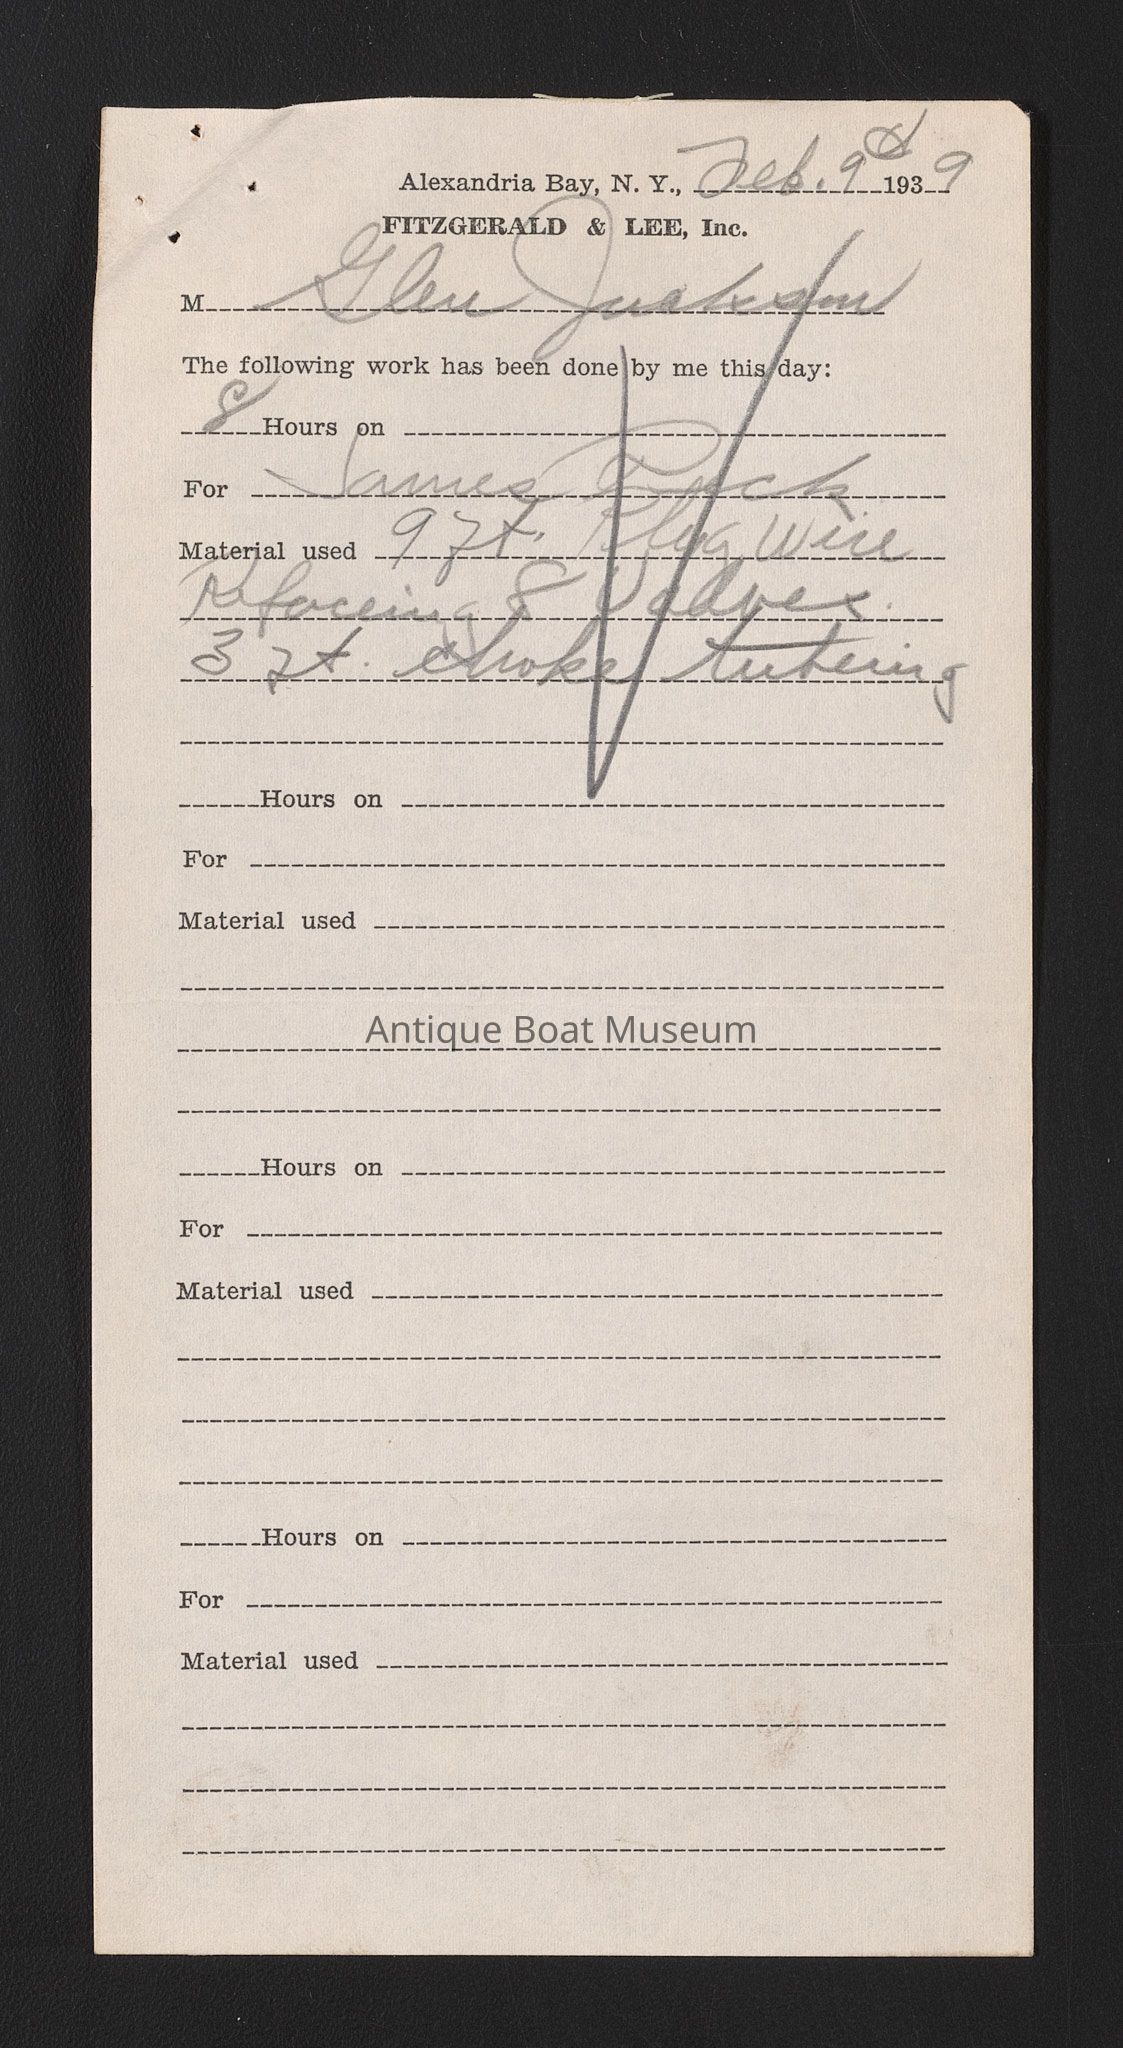 Alexandria Bay, N. Y., Feb. 9th 1939
FITZGERALD & LEE, Inc.
M Glen Jackson
The following work has been done by me this day:
8 Hours on
For James
Material used 9 ft. Plug Wire
Refaceing 8 Valves.
3 ft. choke tubeing
Hours on
For
Material used
Antique Boat Museum
Hours on
For
Material used
Hours on
For
Material used